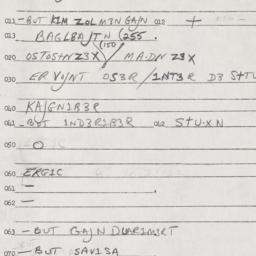 011 - BUT KIM ZOLM3NGAJN 012 +
013 BAGLBAJTN (255.
(150
020 OSTOSTNZ3X / MA-DN Z3X
030 ERVOJNT OS3R / INT3R D3 STTU
040 KAJGNIB3R
041 - BUT IND3RIB3R 042 STU-XN
050 O
060 ERGIC
061 -
062 -
063 - BUT GAJN DUARIM3RT
070 - BUT SAVISA